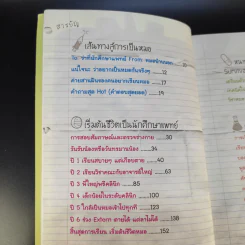 สารบัญ
เส้นทางสู่การเป็นหมอ
แน่ใจนะ ว่าอยากเป็นหมอกันจริงๆ 12
คำถามสุด Hot (คำตอบสุดมอล) 19
เริ่มต้นชีวิตเป็นนักศึกษาแพทย์
การสอบสัมภาษณ์และตรวจร่างกาย 30
รับรับน้องหรือวันทรมานน้อง 34
ปี 1 เรียนสบายๆ แต่เกือบตาย 40
ปี 2 เรียนวิชาคณะกับอาจารย์ใหญ่ 63
ปี 3 พี่ใหญ่พรีคลินิก 85
ปี 4 เด็กน้อยในระดับคลินิก 100
ปี 5 ใกล้เป็นหมอเข้าไปทุกที 123
ปี 6 ช่วง Extern ตายได้ แต่ลาไม่ได้ 138
สิ้นสุดการเรียน เริ่มต้นชีวิตหมอ 152